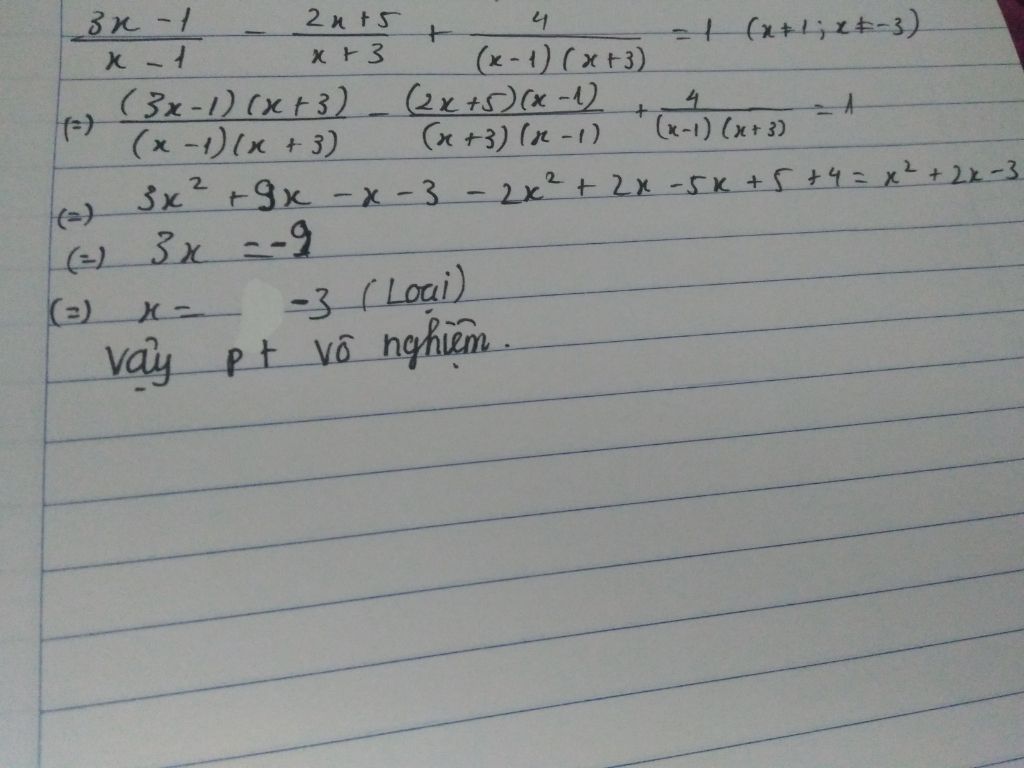 (3x - 1)/(x - 1) - (2x + 5)/(x + 3) + 4/((x - 1)(x + 3)) = 1 (x ≠ 1; x ≠ -3)
(=) ((3x - 1)(x + 3))/((x - 1)(x + 3)) - ((2x + 5)(x - 1))/((x + 3)(x - 1)) + 4/((x - 1)(x + 3)) = 1
(=) 3x² + 9x - x - 3 - 2x² + 2x - 5x + 5 + 4 = x² + 2x - 3
(=) 3x = -9
(=) x = -3 (Loại)
Vậy pt vô nghiệm.